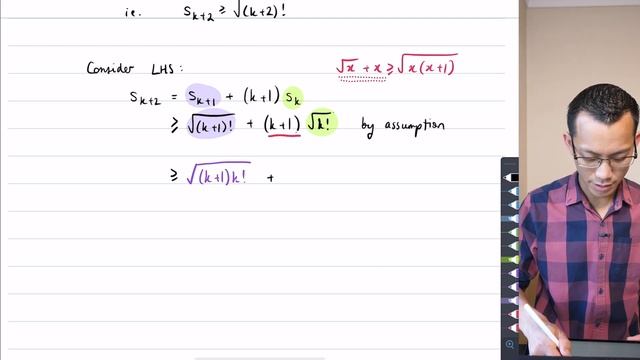 ie. S_{k+2} ≥ √(k+2)!
Consider LHS: √x + x ≥ √(x(x+1))
S_{k+2} = S_{k+1} + (k+1) S_k
≥ √(k+1)! + (k+1) √k! by assumption
≥ √(k+1)k! +